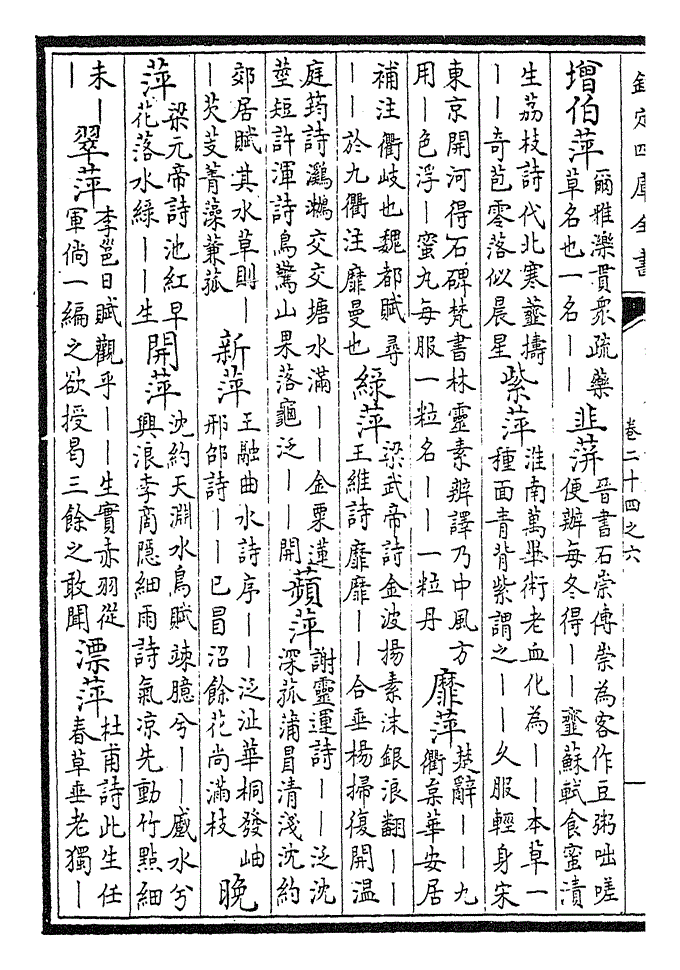 欽定四庫全書 卷二十四之六 一
增伯萍 爾雅濼貫眾疏藥
草名也一名丨丨
韭蓱 晉書石崇傳崇為客作豆粥咄嗟
便辦每冬得丨丨虀蘇軾食蜜漬
生荔枝詩代北寒虀擣
丨丨奇苞零落似晨星
紫萍 淮南萬畢術老血化為丨丨本草一
種面青背紫謂之丨丨久服輕身宋
東京開河得石碑梵書林靈素辨譯乃中風方
用丨色浮丨蜜丸每服一粒名丨丨一粒丹
靡萍 楚辭丨丨九
衢枲華安居
補注衢岐也魏都賦尋
丨丨於九衢注靡曼也
綠萍 梁武帝詩金波揚素沫銀浪翻丨丨
王維詩靡靡丨丨合垂楊掃復開溫
庭筠詩鸂鶒交交塘水滿丨丨金粟蓮
莖短許渾詩鳥驚山果落龜泛丨丨開
蘋萍 謝靈運詩丨丨泛沈
深菰蒲冒清淺沈約
郊居賦其水草則丨
丨芡芰菁藻蒹菰
新萍 王融曲水詩序丨丨泛沚華桐發岫
邢邵詩丨丨已冒沼餘花尚滿枝
晚
萍 梁元帝詩池紅早
花落水綠丨丨生
開萍 沈約天淵水鳥賦竦臆兮丨丨蹙水兮
興浪李商隱細雨詩氣凉先動竹點細
未丨
丨
翠萍 李邕日賦觀乎丨丨生實赤羽從
軍倘一編之欲授曷三餘之敢聞
漂萍 杜甫詩此生任
春草垂老獨丨